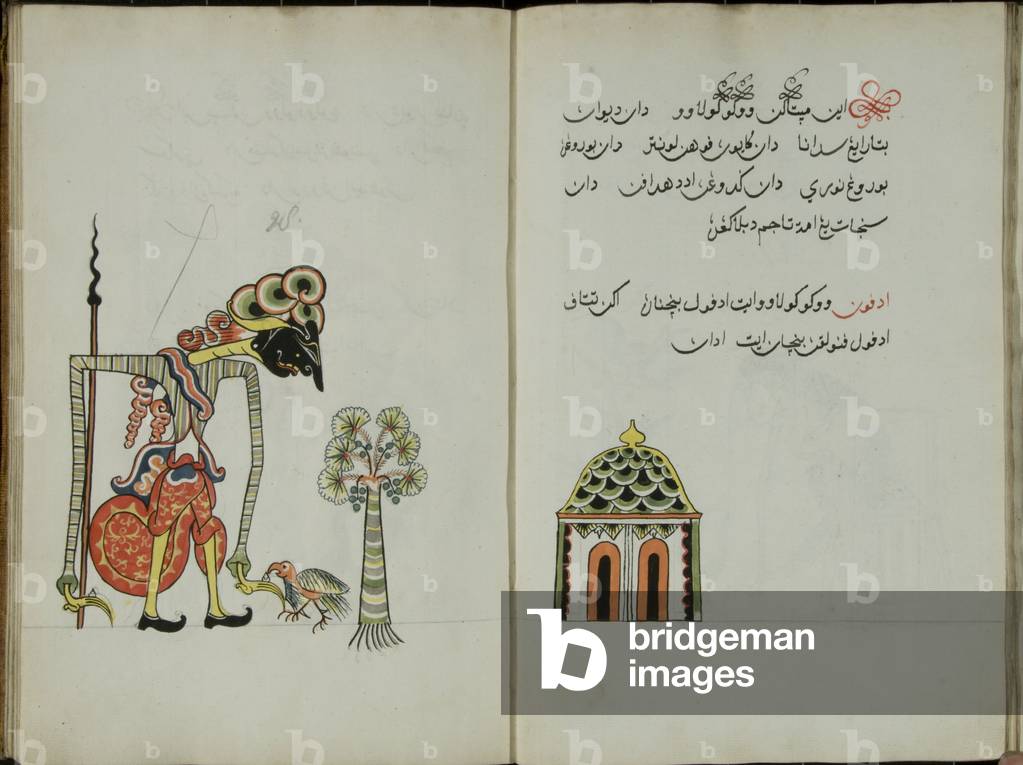 اين مپتاكن ووكوكولاوو دان ديوان
بتارا سدانا دان كايون فوهن لونتر دان بوروڠن
بوروڠ نوري دان كدوڠن اد دهدافن دان
سنجات يڠ امة تاجم دبلاكڠن
ادفون ووكوكولاوو ايت ادفول بنچنان اكن تتاف
ادفول فنولقن بنچان ايت ادان
bridgeman
images